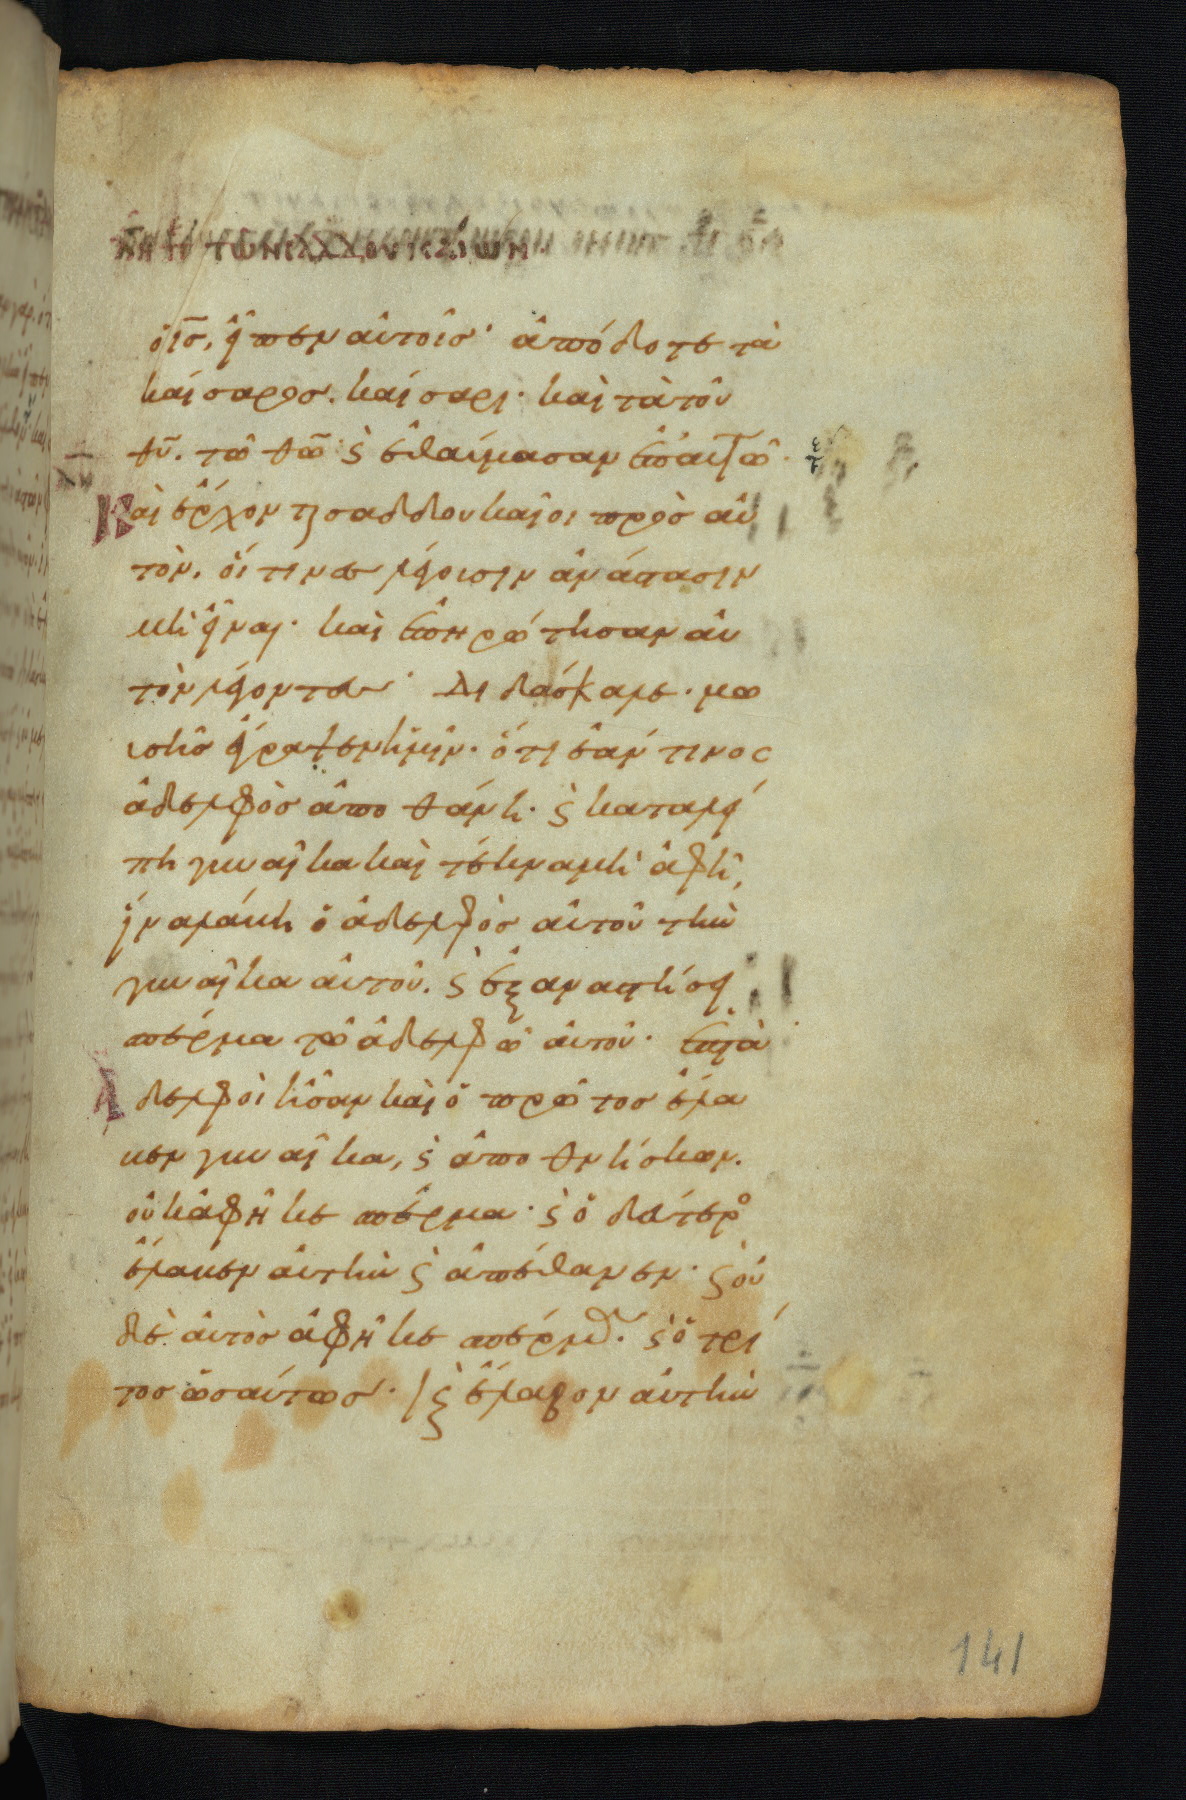 κη περὶ τῶν σαδδουκαίων
ὁ ις, εἶπεν αὐτοῖς· ἀπόδοτε τὰ
καίσαρος. καίσαρι· καὶ τὰ τοῦ
θυ. τῶ θῶ· ϛ ἐθαύμασαν ἐπ αυτῶ·
Καὶ ἔρχονται σαδδουκαῖοι πρὸς αὐ
τὸν. οἵτινες λέγουσιν ἀνάστασιν
μὴ εἶναι· καὶ ἐπηρώτησαν αὐ
τὸν λέγοντες· διδάσκαλε. μω
ισῆς ἔγραψεν ἡμῖν. ὅτι ἐάν τινος
ἀδελφὸς ἀποθάνη. ϛ καταλεί
πη γυναῖκα καὶ τέκνα μὴ ἀφῆ,
ἵνα λάβη ὁ ἀδελφὸς αὐτοῦ τὴν
γυναῖκα αὐτοῦ. ϛ ἐξαναστήσει
σπέρμα τῶ ἀδελφῶ αὐτοῦ· ἑπτὰ
Αδελφοὶ ἦσαν καὶ ὁ πρῶτος ἔλα
βεν γυναῖκα, ϛ ἀποθνήσκων.
οὐκ ἀφῆκε σπέρμα· ϛ ὁ δεύτερος
ἔλαβεν αὐτὴν ϛ ἀπέθανεν· ϛ οὐ
δὲ αὐτὸς ἀφῆκε σπέρμα. ϛ ὁ τρί
τος ὡσαύτως· ϛ ἔλαβον αὐτὴν
141